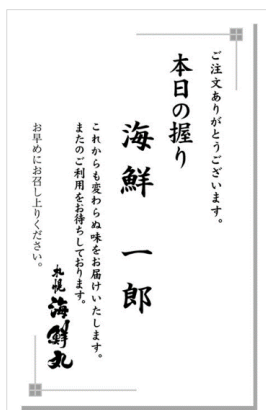 ご注文ありがとうございます。
本日の握り
海鮮 一郎
これからも変わらぬ味をお届けいたします。
またのご利用をお待ちしております。
お早めにお召し上りください。
札幌海鮮丸